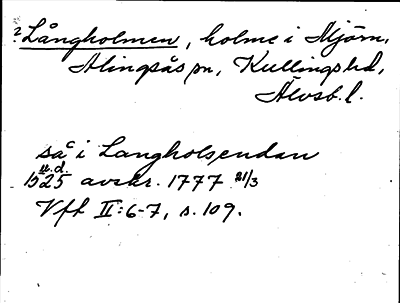 ? Långholmen, holme i Mjörn,
Alingsås sn, Kullings hd,
Älvsb. l.
sac i Langholsendan
u.d.
1525 avskr. 1777 21/3
Vft II:6-7, s. 109.